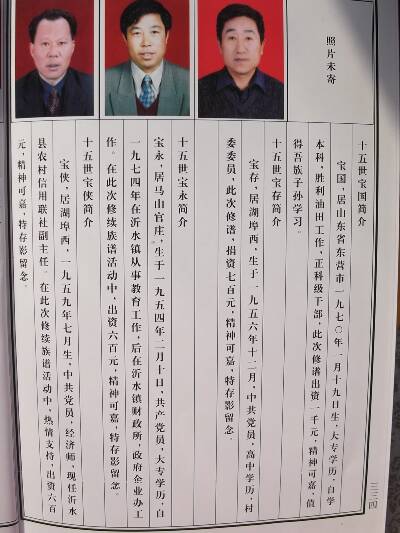 照片未寄
十五世宝国简介
宝国，居山东省东营市一九七〇年一月十九日生，大专学历，自学
本科，胜利油田工作，正科级干部，此次修谱出资一千元，精神可嘉，值
得吾族子孙学习。
十五世宝存简介
宝存，居湖埠西，生于一九五六年十二月，中共党员，高中学历，村
委委员，此次修谱，捐资七百元，精神可嘉，特存影留念。
十五世宝永简介
宝永，居马山官庄，生于一九五四年二月十日，共产党员，大专学历，自
一九七四年在沂水镇从事教育工作，后在沂水镇财政所，政府企业办工
作。在此次修续族谱活动中，出资六百元，精神可嘉，特存影留念。
十五世宝侠简介
宝侠，居湖埠西，一九五九年七月生，中共党员，经济师，现任沂水
县农村信用联社副主任。在此次修续族谱活动中，热情支持，出资六百
元，精神可嘉，特存影留念。
三三四